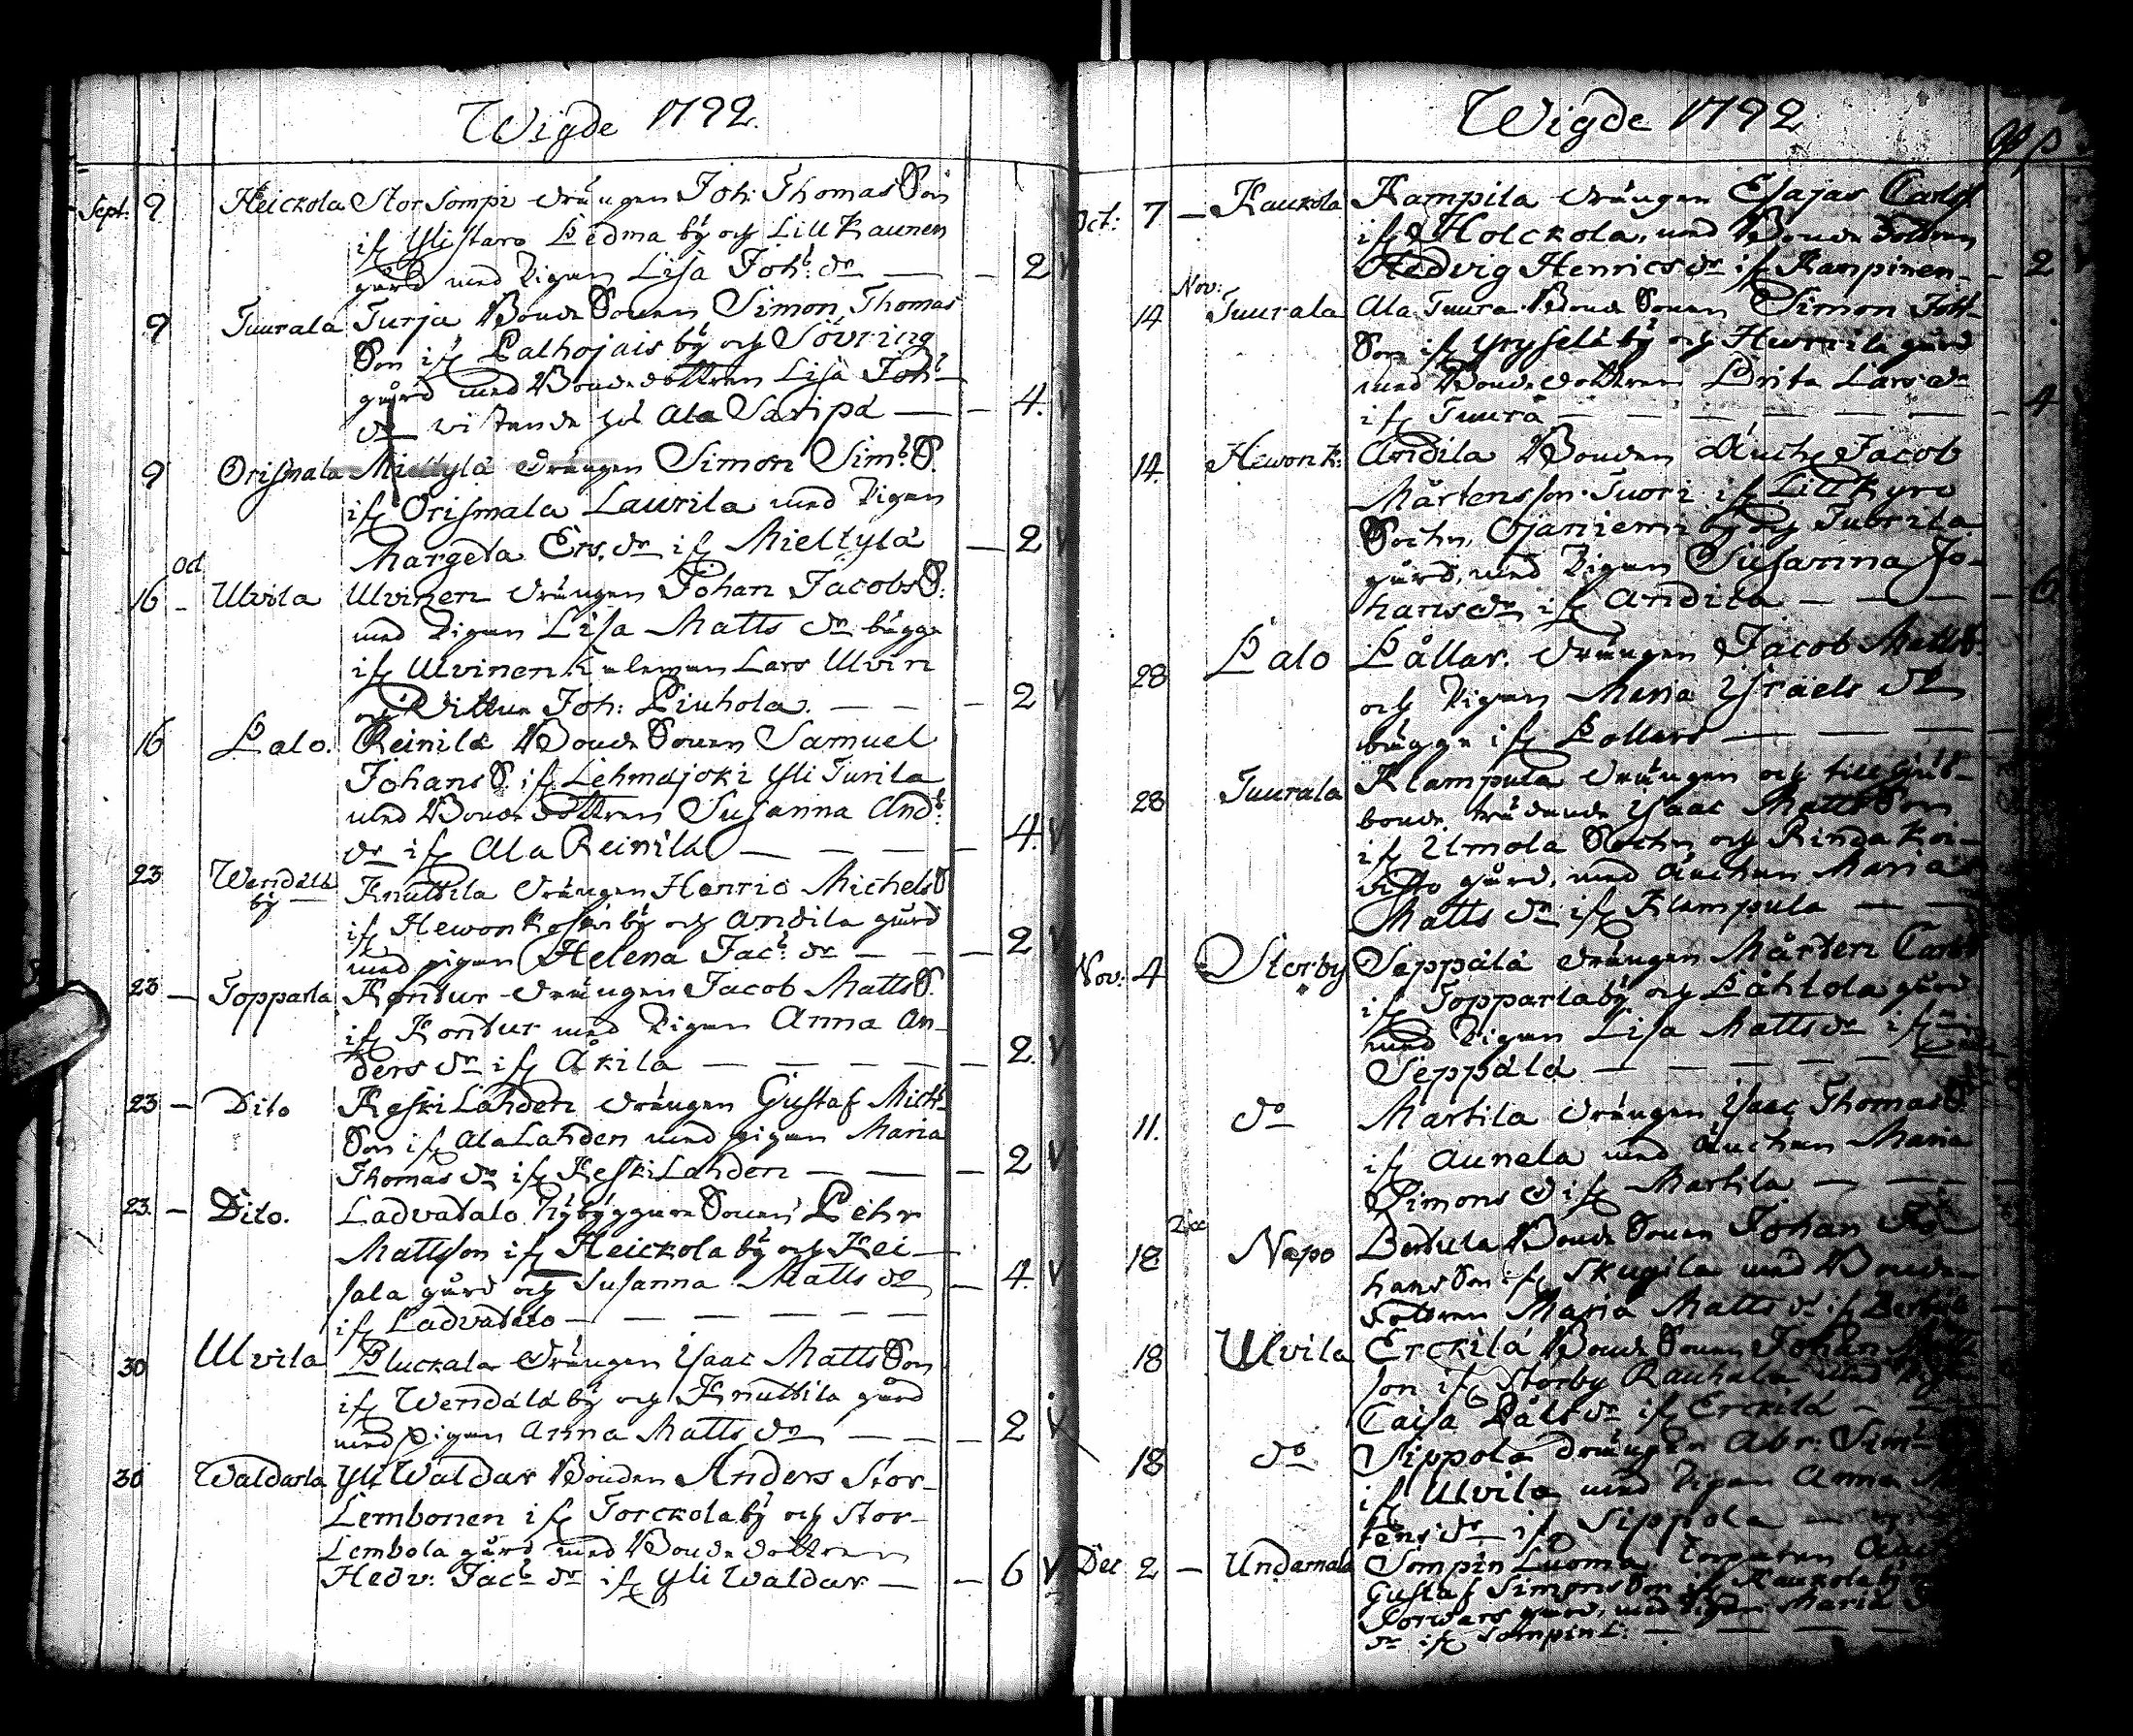 Wigde 1792.
Sept: 9 Heickola Stor Sompi drängen Joh: Thomas Son
ifr. Ylistaro Pedma bÿ och Lill Kaunen
gård med Pigan Lisa Joh: dr — — 2
9 Tuurala Turja Bonde Sonen Simon Thomas
Son ifr. Palhojais bÿ och Sövring
gård med Bondedottren Lisa Joh:
dr vistande hos Ala Saripä — — 4.
9 Orismala Mieltylä drängen Simon Sim: S.
ifr. Orismala Laurila med Pigan
Margeta Ers. dr ifr. Mieltylä — 2
Od
16 – Ulvila Ulvinen drängen Johan Jacobs S:
med Pigan Lisa Matts dr bägge
ifr. Ulvinen Lars Ulvin
och Joh: Piuhola. — — — 2
16 Palo. Reinilä Bonde Sonen Samuel
Johans S. ifr. Lehmäjoki Yli Turila
med Bondedottren Susanna And:
dr ifr. Ala Reinilä — — — — 4.
23 Wendälä bÿ — Knuttila drängen Henric Michels S
ifr. Hewonkoski bÿ och Andila gård
med pigan Helena Jac: dr — — — 2
23 — Topparla Kontur drängen Jacob Matts S.
ifr. Kontur med Pigan Anna An-
ders dr ifr. Åkila — — — — — 2.
23 — Dito Keski Lahden drängen Gustaf Mich:
Son ifr. Ala Lahden med pigan Maria
Thomas dr ifr. Keski Lahden — — — 2
23. — Dito. Ladvatalo Nÿbÿggare Sonen Pehr
Mattsson ifr. Heickola bÿ och Kei-
sala gård och Susanna Matts dr — 4.
ifr. Ladvatalo — — — — — —
30 Ulvila Pluckala drängen Isaac Matts Son
ifr. Wendälä bÿ och Knuttila gård
med pigan Anna Matts dr — — — 2
30 Waldarla Yli Waldar Bonden Anders Stor-
Lembonen ifr. Torckola bÿ och Stor-
Lembola gård med Bondedottren
Hedv: Jac: dr ifr. Yli Waldar — — 6
Wigde 1792
Oct: 7 — Kaukola Kampila drängen Esajas Carls S
ifr. Holckola, med Bondedottren
Hedvig Henrics dr ifr. Kampinen — 2
Nov:
14 Tuurala Ala Tuura Bonde Sonen Simon Joh:
Son ifr. bÿ och gård
med Bondedottren Brita Lars dr
ifr. Tuura — — — — — — — 4
14. Hewonk: Andila Bonden Änck: Jacob
Mårtensson Tuori ifr. Lill Kyro
Sochn, Ojaniemi bÿ och Tuorila
gård, med Pigan Susanna Jo-
hans dr ifr. Andila — — — — 6.
28 Palo Pållar. drängen Jacob Matts S.
och Pigan Maria Israels dr
bägge ifr. Pollars — — — —
28 Tuurala Klampula drängen och till
bonde trädande Isaac Matts Son
ifr. Ilmola Sochn och Rinda Koi-
visto gård, med Änckan Maria
Matts dr ifr. Klampula — —
Nov: 4 Storby Seppälä drängen Mårten Carls S
ifr. Topparla bÿ och Påhlola gård
med Pigan Lisa Matts dr ifr.
Seppälä — — — — — —
11. do Martila drängen Isaac Thomas S.
ifr. Aunela med änckan Maria
Simons d ifr. Martila — — — —
18 Napo Bertula Bonde Sonen Johan Jo-
hans Son ifr. Skugila med Bonde-
dottren Maria Matts d. ifr. Bertula —
18 Ulvila Erckilä Bonde Sonen Johan
son ifr. Storby Rauhala med Pigan
Caisa dr ifr. Erckilä — —
18 do Sippola drängen Abr: Sim:
ifr. Ulvila med Pigan Anna
tens dr ifr. Sippola — —
Dec 2 — Undamala Sompin Luoma torparen
Gustaf Simons Son ifr. Kaukola bÿ
gård, med Pigan Maria
dr ifr. Sompin L: — — — —